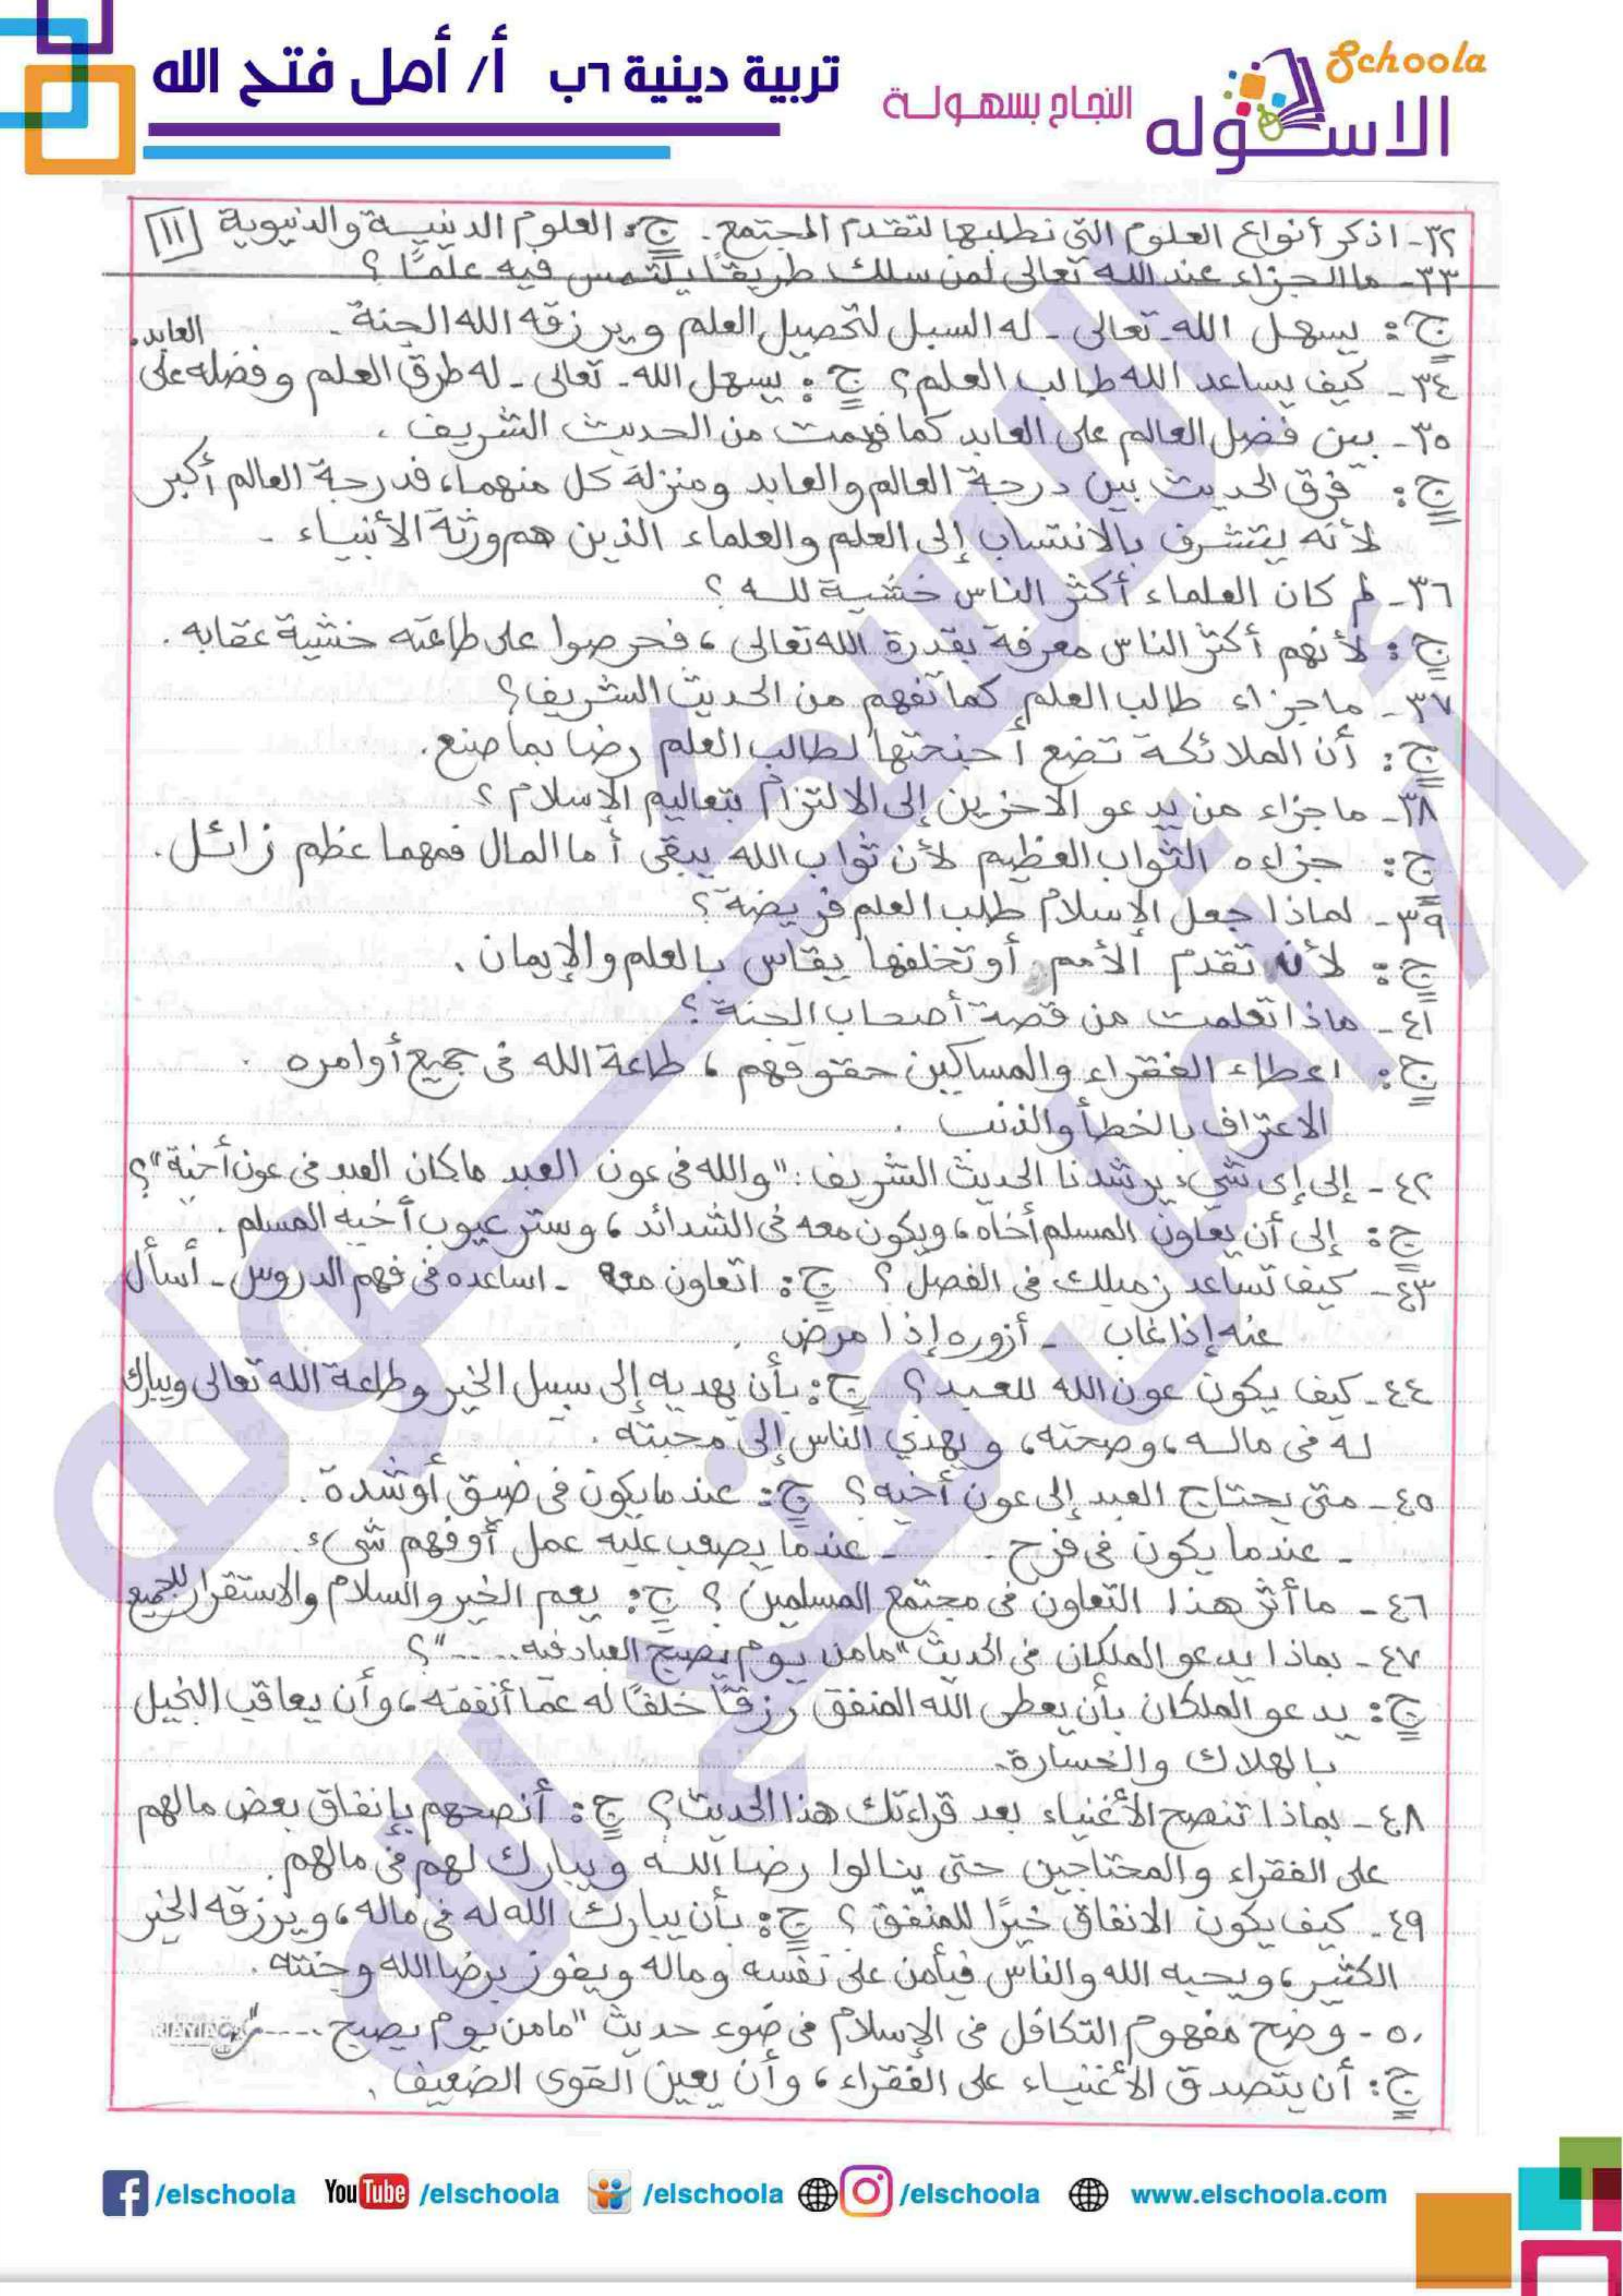 تربية دينية ٦ب أ/ أمل فتح الله
Schoola
الاسكوله
النجاح بسهولة
٣٢- اذكر أنواع العلوم التى نطلبها لتقدم المجتمع. ج: العلوم الدينية والدنيوية [١١]
٣٣- ما الجزاء عند الله تعالى لمن سلك طريقًا يلتمس فيه علمًا ؟
ج: يسهل الله- تعالى - له السبل لتحصيل العلم ويرزقه الله الجنة.
٣٤- كيف يساعد الله طالب العلم؟ ج: يسهل الله- تعالى- له طرق العلم وفضله على العابد.
٣٥- بين فضل العالم على العابد كما فهمت من الحديث الشريف.
ج: فرق الحديث بين درجة العالم والعابد ومنزلة كل منهما، فدرجة العالم أكبر
لأنه يتشرف بالانتساب إلى العلم والعلماء الذين هم ورثة الأنبياء.
٣٦- لم كان العلماء أكثر الناس خشية لله ؟
ج: لأنهم أكثر الناس معرفة بقدرة الله تعالى ، فحرصوا على طاعته خشية عقابه.
٣٧- ما جزاء طالب العلم كما تفهم من الحديث الشريف؟
ج: أن الملائكة تضع أجنحتها لطالب العلم رضا بما صنع.
٣٨- ما جزاء من يدعو الآخرين إلى الالتزام بتعاليم الإسلام ؟
ج: جزاءه الثواب العظيم لأن ثواب الله يبقى أما المال فمهما عظم زائل.
٣٩- لماذا جعل الإسلام طلب العلم فريضة؟
ج: لأن تقدم الأمم أو تخلفها يقاس بالعلم والإيمان.
٤١- ماذا تعلمت من قصة أصحاب الجنة ؟
ج: اعطاء الفقراء والمساكين حقوقهم ، طاعة الله فى جميع أوامره
الاعتراف بالخطأ والذنب.
٤٢- إلى إى شيء يرشدنا الحديث الشريف: "والله فى عون العبد ماكان العبد فى عون أخيه"؟
ج: إلى أن يعاون المسلم أخاه، ويكون معه فى الشدائد، وستر عيوب أخيه المسلم.
٤٣- كيف تساعد زميلك فى الفصل ؟ ج: اتعاون معه - اساعده فى فهم الدروس- أسأل
عنه إذا غاب - أزوره إذا مرض.
٤٤- كيف يكون عون الله للعبد؟ ج: بأن يهديه إلى سبيل الخير وطاعة الله تعالى ويبارك
له فى ماله، وصحته، ويهدي الناس إلى محبته.
٤٥- متى يحتاج العبد إلى عون أخيه؟ ج: عندما يكون فى ضيق أو شدة.
- عندما يكون فى فرح. - عندما يصعب عليه عمل أوفهم شيء.
٤٦- ما أثر هذا التعاون فى مجتمع المسلمين ؟ ج: يعم الخير والسلام والاستقرار للجميع
٤٧- بماذا يدعو الملكان فى الحديث "مامن يوم يصبح العباد فيه....."؟
ج: يدعو الملكان بأن يعطى الله المنفق رزقًا خلفًا له عما أنفقه، وأن يعاقب البخيل
بالهلاك والخسارة.
٤٨- بماذا تنصح الأغنياء بعد قراءتك هذا الحديث؟ ج: أنصحهم بإنفاق بعض مالهم
على الفقراء والمحتاجين حتى ينالوا رضا الله ويبارك لهم فى مالهم.
٤٩- كيف يكون الانفاق خيرًا للمنفق ؟ ج: بأن يبارك الله له فى ماله، ويرزقه الخير
الكثير، ويحبه الله والناس فيأمن على نفسه وماله ويفوز برضا الله وجنته.
٥٠- وضح مفهوم التكافل فى الإسلام فى ضوء حديث "مامن يوم يصبح....."
ج: أن يتصدق الأغنياء على الفقراء ، وأن يعين القوى الضعيف.
/elschoola YouTube /elschoola /elschoola /elschoola www.elschoola.com